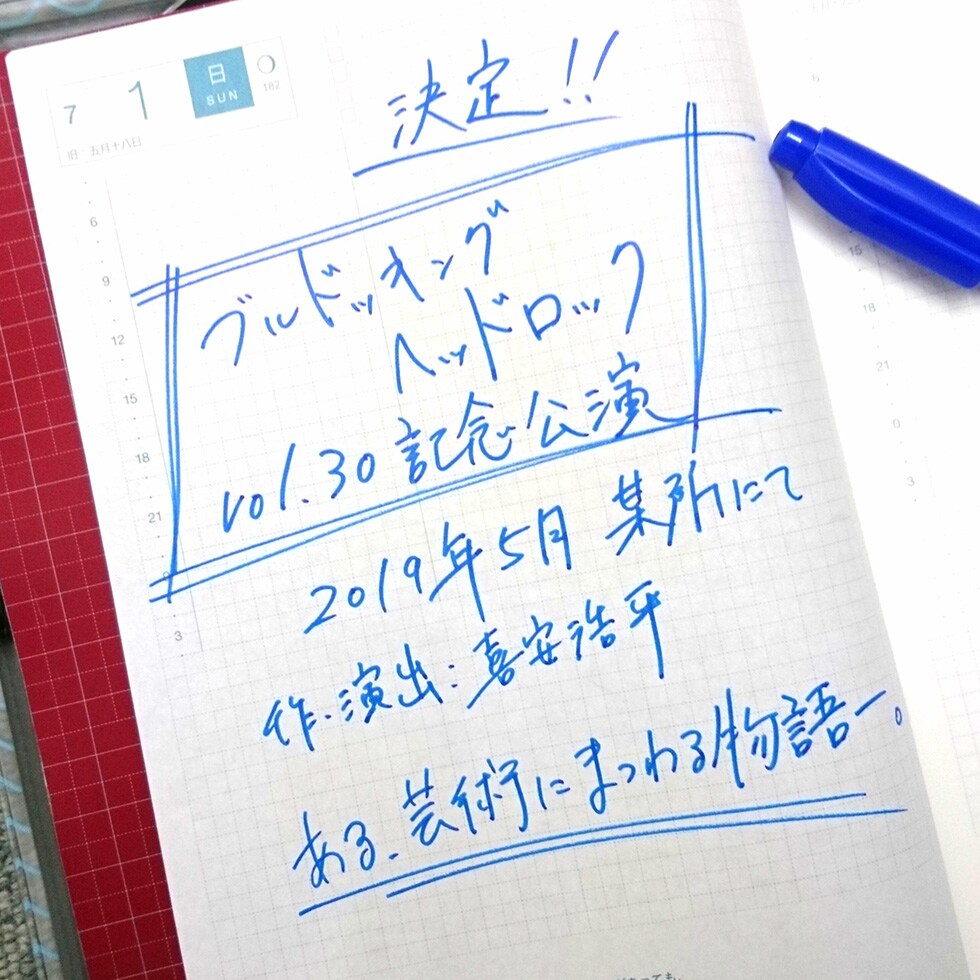 7 1 日 SUN 182
旧 五月十八日
決定!!
ブルドッキング
ヘッドロック
vol.30 記念公演
2019年5月 某所にて
作・演出:喜安浩平
ある、芸術にまつわる物語ー。
6
9
12
15
18
21
3
15
21
0
3